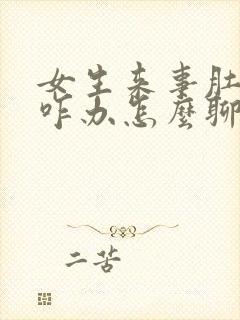 女生来事肚
咋办怎麽聊
二苦